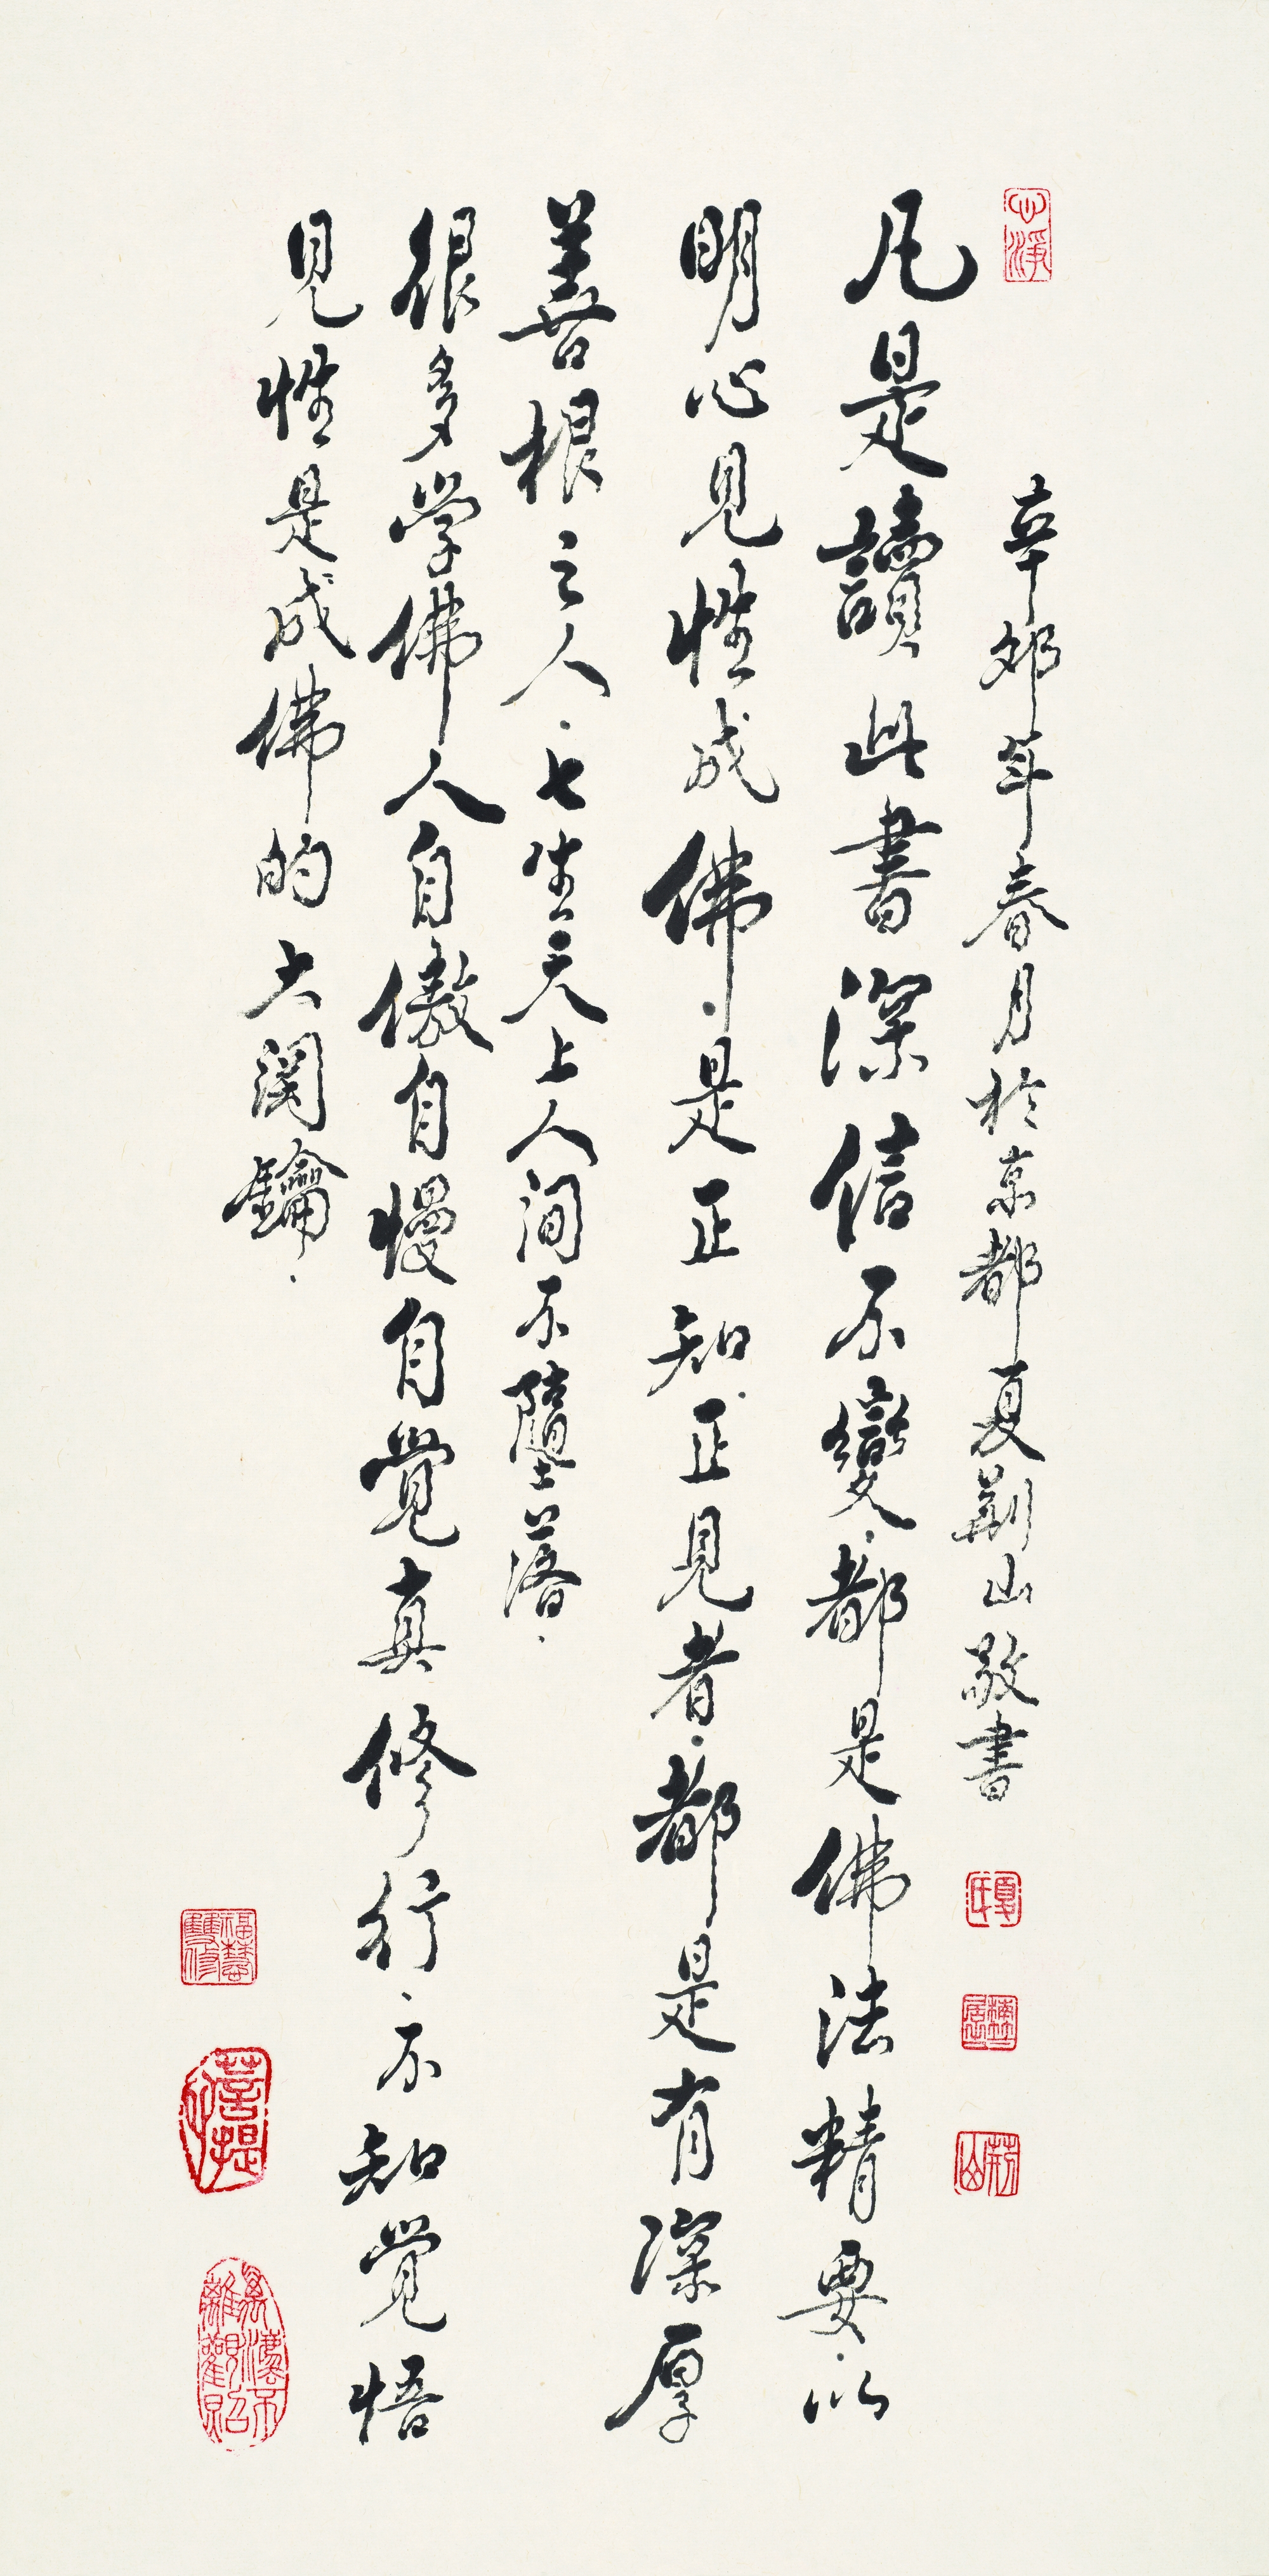 心淨
辛卯年春月於京都夏荊山敬書
夏氏
荊山
凡是讀此書深信不變．都是佛法精要．以
明心見性成佛．是正知．正見者．都是有深厚
善根之人．七生天上人間不墮落．
很多學佛人自傲自慢自覺真修行．不知覺悟
見性是成佛的大関鑰．
福慧雙修
菩提心
萬法不離觀照